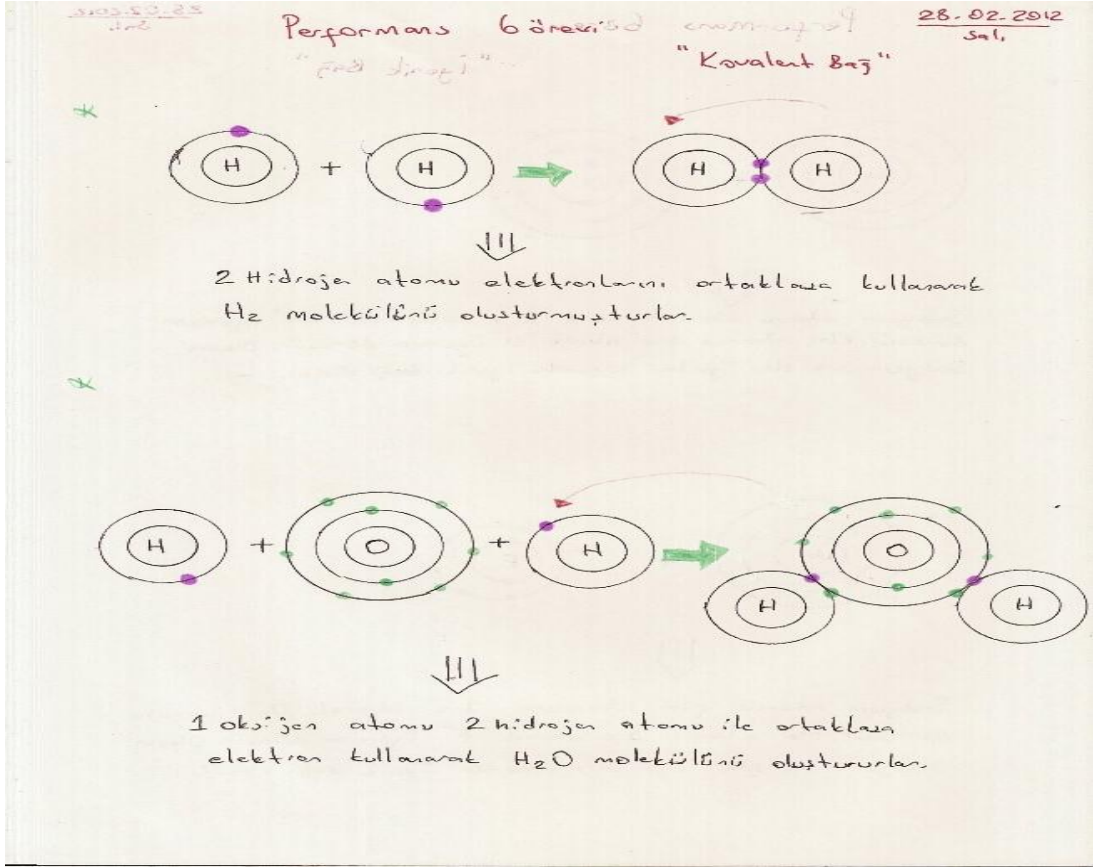 Performans Görevi
28.02.2012
Salı
"Kovalent Bağ"
H + H H H
2 Hidrojen atomu elektronlarını ortaklaşa kullanarak
H2 molekülünü oluşturmuşturlar.
H + O + H O
H H
1 oksijen atomu 2 hidrojen atomu ile ortaklaşa
elektron kullanarak H2O molekülünü oluştururlar.